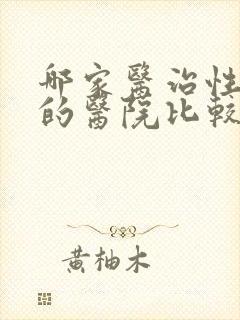 哪家醫治性
的醫院比較
黃柚木